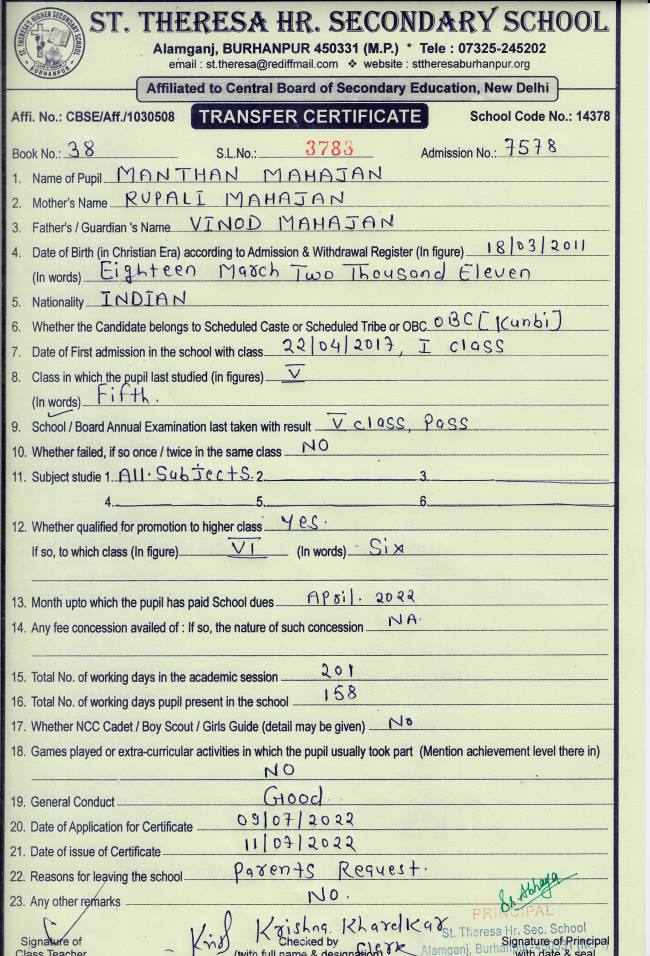 ST. THERESA HR. SECONDARY SCHOOL
Alamganj, BURHANPUR 450331 (M.P.) * Tele : 07325-245202
email : st.theresa@rediffmail.com ❖ website : sttheresaburhanpur.org
Affiliated to Central Board of Secondary Education, New Delhi
Affi. No.: CBSE/Aff./1030508 TRANSFER CERTIFICATE School Code No.: 14378
Book No.: 38 S.L.No.: 3783 Admission No.: 7578
1. Name of Pupil MANTHAN MAHAJAN
2. Mother's Name RUPALI MAHAJAN
3. Father's / Guardian 's Name VINOD MAHAJAN
4. Date of Birth (in Christian Era) according to Admission & Withdrawal Register (In figure) 18/03/2011
(In words) Eighteen March Two Thousand Eleven
5. Nationality INDIAN
6. Whether the Candidate belongs to Scheduled Caste or Scheduled Tribe or OBC OBC [Kunbi]
7. Date of First admission in the school with class 22/04/2017, I class
8. Class in which the pupil last studied (in figures) V
(In words) Fifth.
9. School / Board Annual Examination last taken with result V class, Pass
10. Whether failed, if so once / twice in the same class NO
11. Subject studie 1. All Subjects 2. 3.
4. 5. 6.
12. Whether qualified for promotion to higher class Yes.
If so, to which class (In figure) VI (In words) Six
13. Month upto which the pupil has paid School dues April. 2022
14. Any fee concession availed of : If so, the nature of such concession NA.
15. Total No. of working days in the academic session 201
16. Total No. of working days pupil present in the school 158
17. Whether NCC Cadet / Boy Scout / Girls Guide (detail may be given) No
18. Games played or extra-curricular activities in which the pupil usually took part (Mention achievement level there in)
NO
19. General Conduct Good
20. Date of Application for Certificate 09/07/2022
21. Date of issue of Certificate 11/07/2022
22. Reasons for leaving the school Parents Request.
23. Any other remarks NO.
PRINCIPAL
Krishna Khardkar St. Theresa Hr. Sec. School
Signature of Checked by Clerk Alamganj, Signature of Principal
Class Teacher (with full name & designation) with date & seal